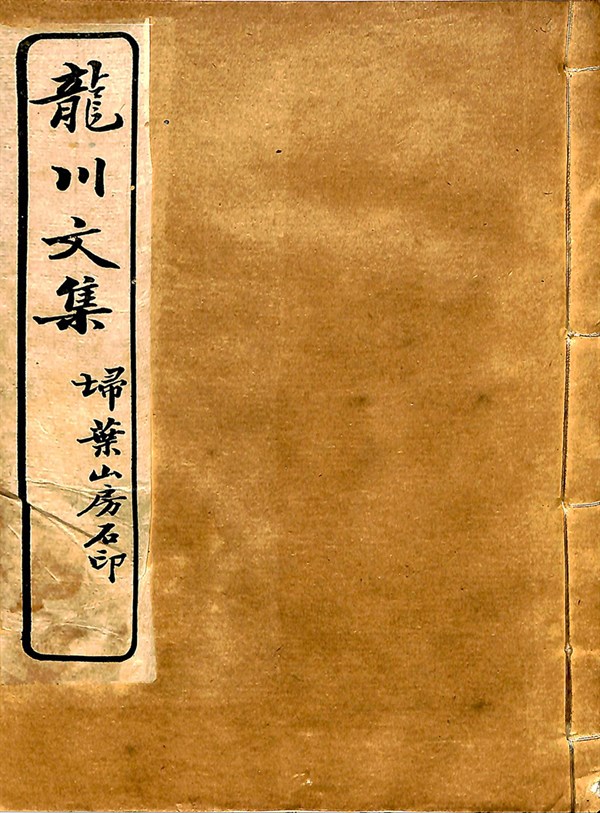 龍川文集
埽葉山房石印